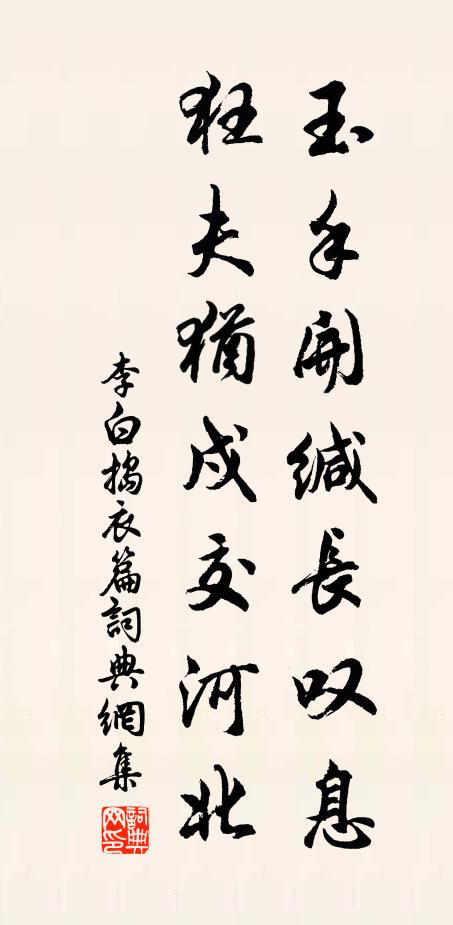 玉手開緘長叹息
狂夫猶戍交河北
李白搗衣篇詞典網集
詞典網印